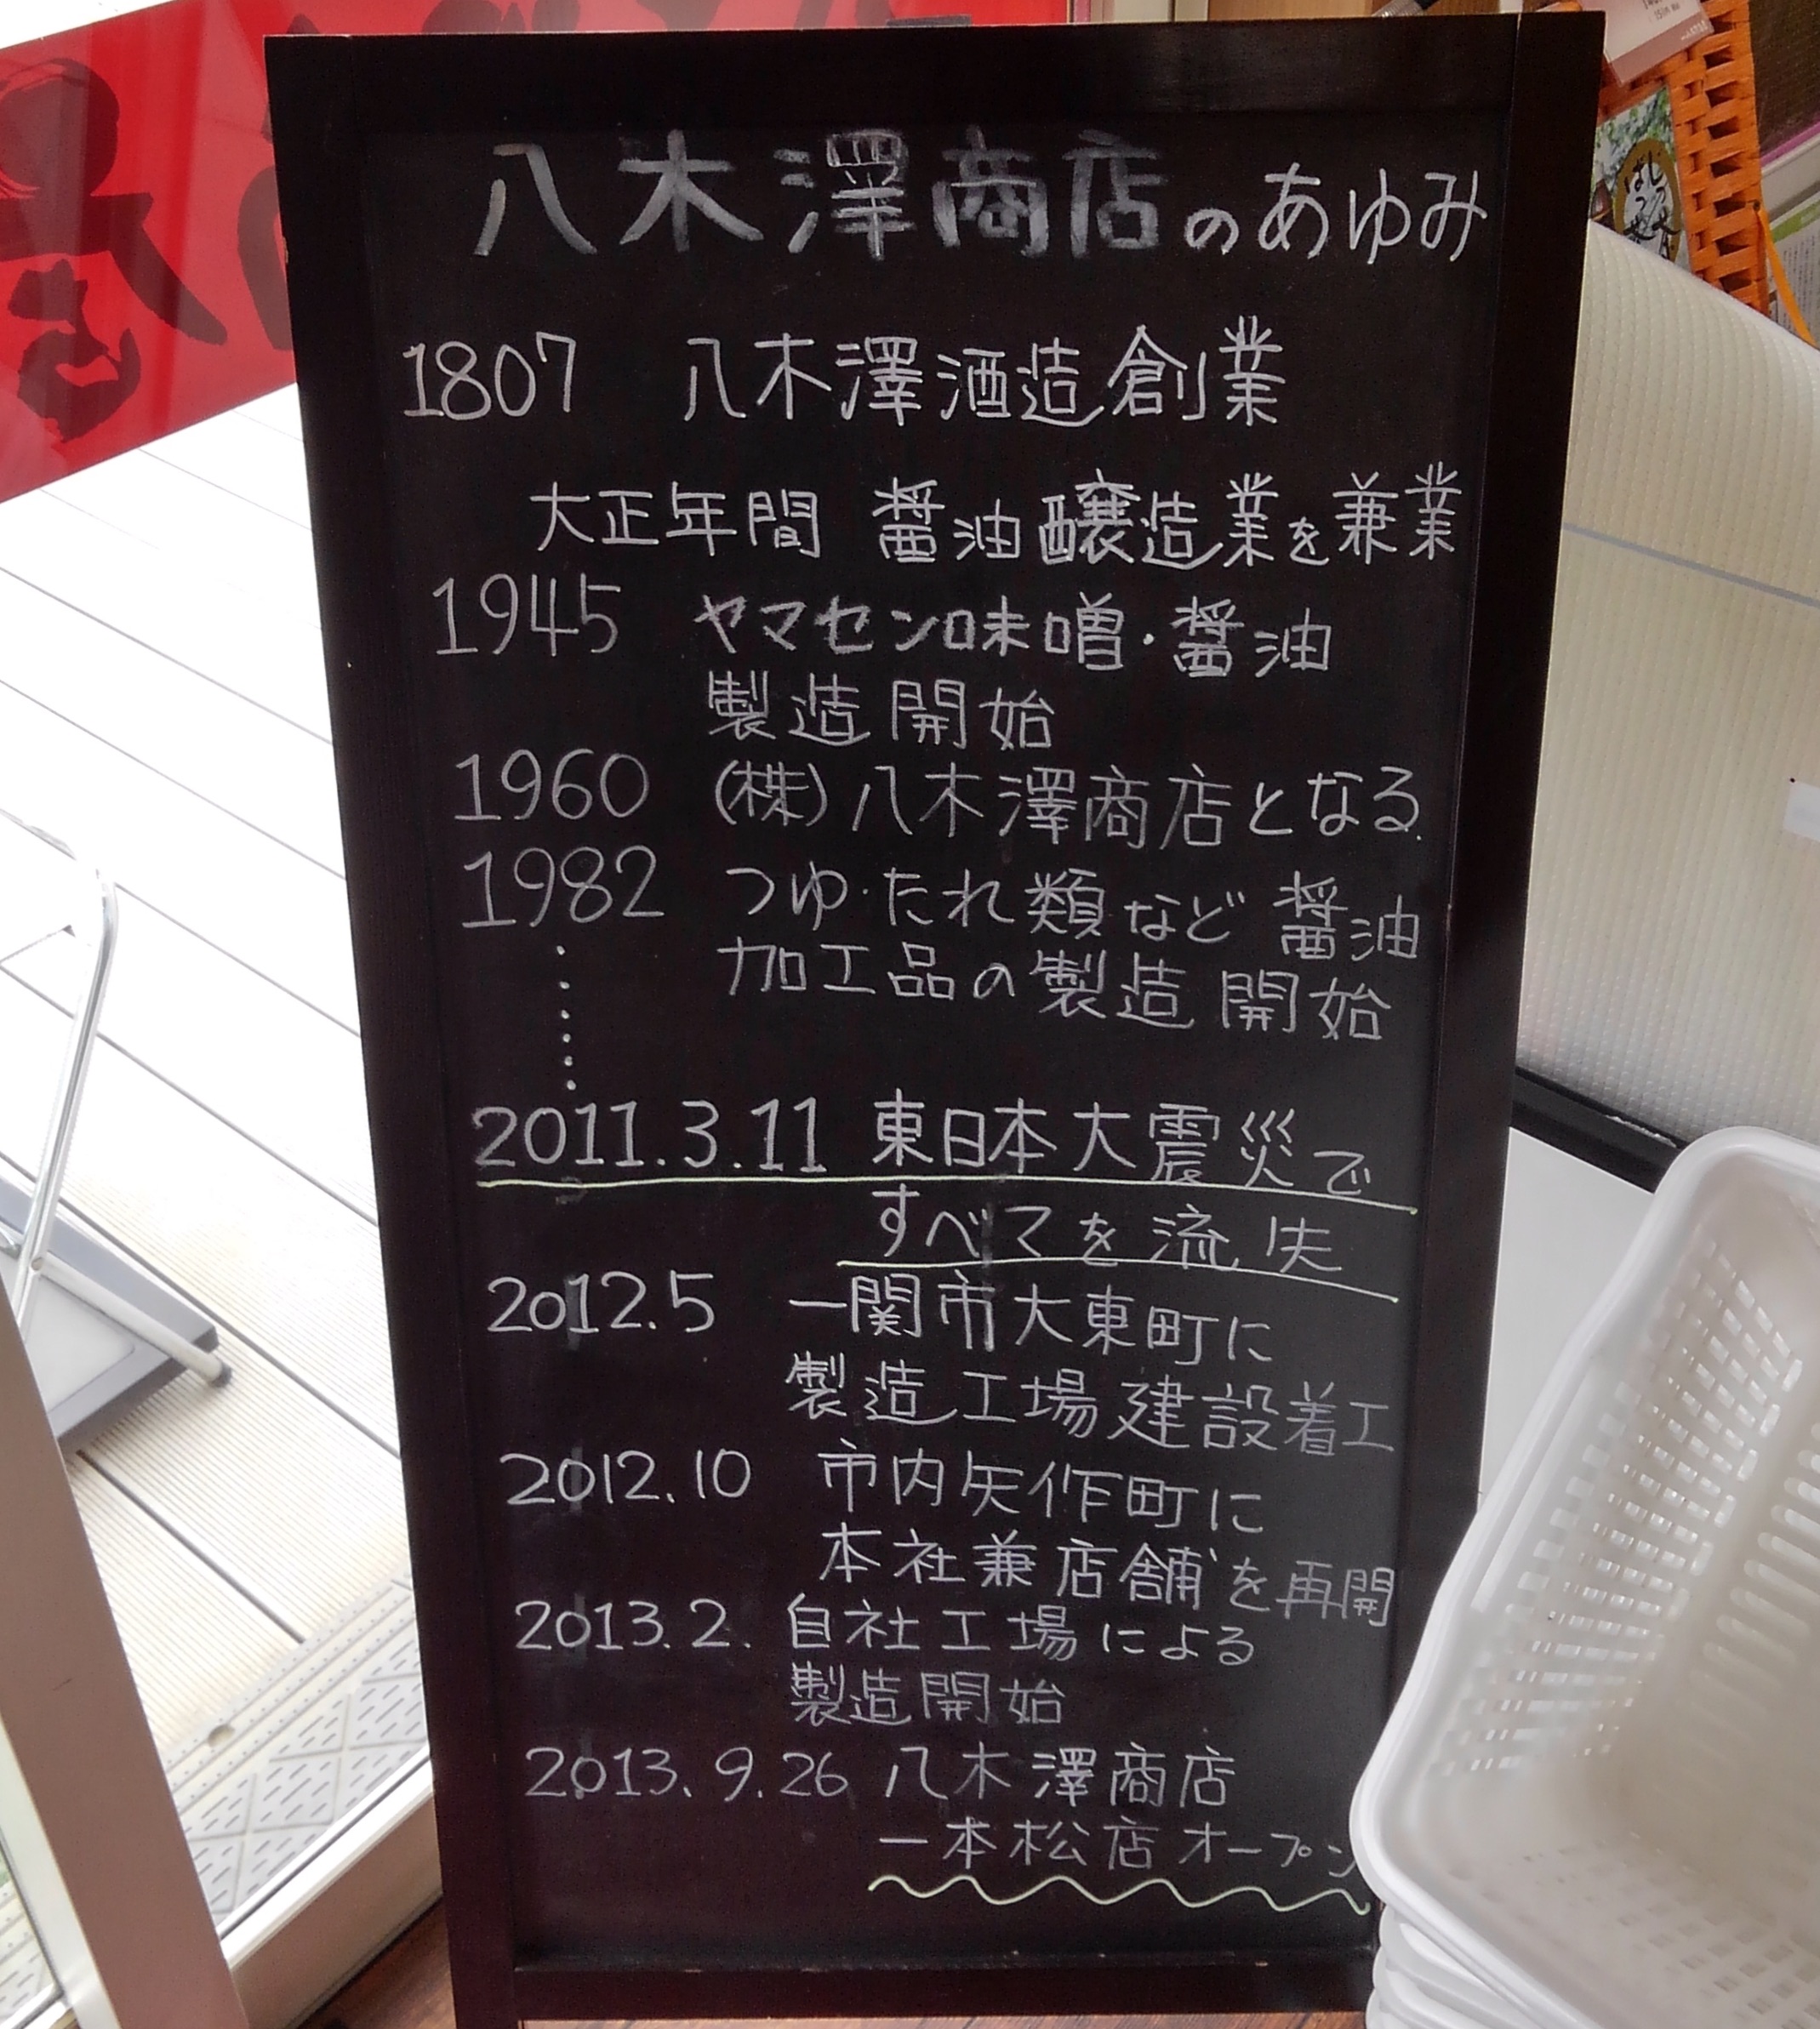 八木澤商店のあゆみ
1807 八木澤酒造創業
大正年間 醤油醸造業を兼業
1945 ヤマセン味噌・醤油
製造開始
1960 (株)八木澤商店となる
1982 つゆ・たれ類など醤油
加工品の製造開始
2011.3.11 東日本大震災で
すべてを流失
2012.5 一関市大東町に
製造工場建設着工
2012.10 市内矢作町に
本社兼店舗を再開
2013.2. 自社工場による
製造開始
2013.9.26 八木澤商店
一本松店オープン